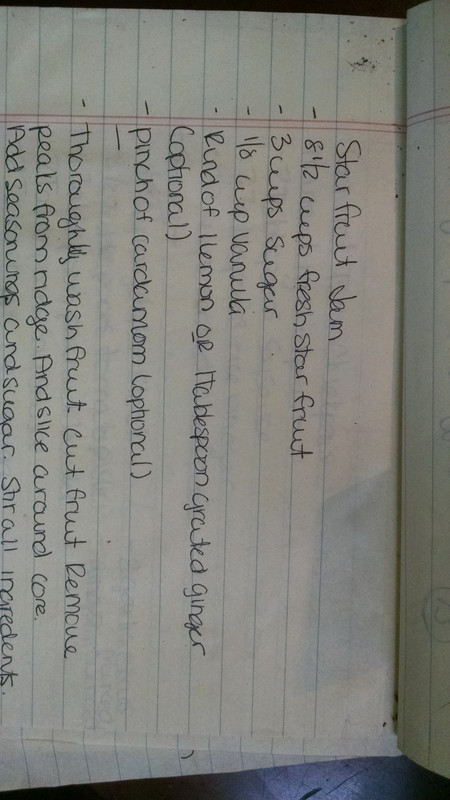 Star fruit Jam
- 8 1/2 cups fresh star fruit
- 3 cups sugar
- 1/8 cup Vanilla
- Rind of 1 lemon OR 1 tablespoon grated ginger
(optional)
- pinch of cardamom (optional)
- Thoroughly wash fruit cut fruit Remove
peals from ridge. And slice around core.
Add seasonings and sugar. Stir all ingredents.